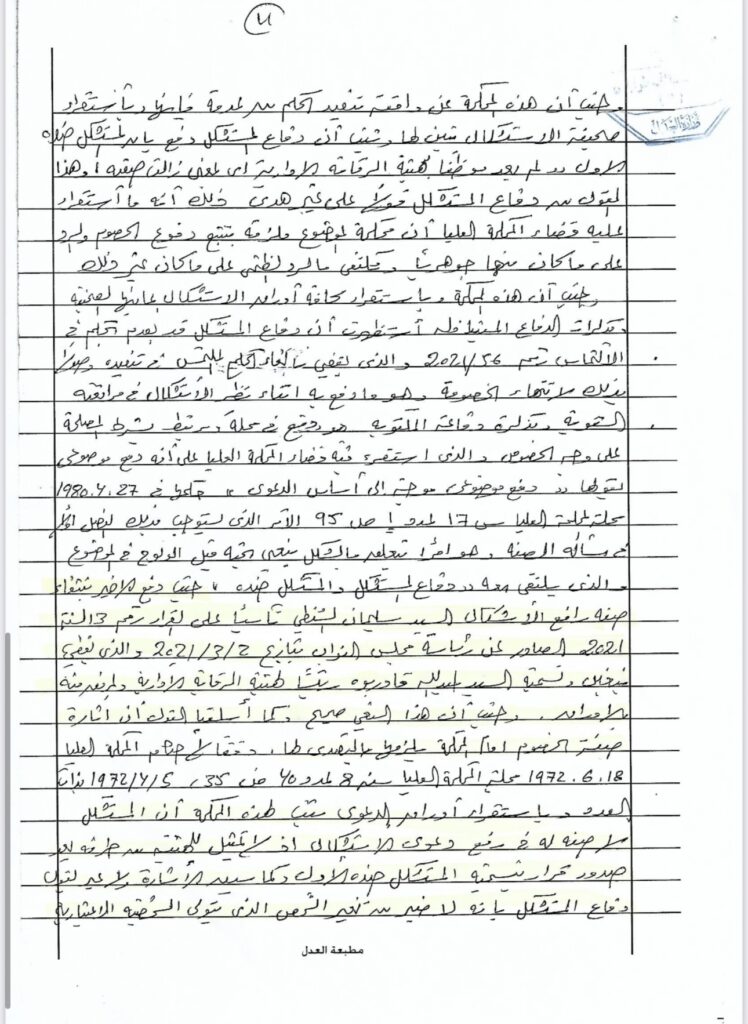 وحيث أن هذه المحكمة عن واقعة تنفيذ الحكم من عدمه فإنها وباستقراء
صحيفة الاستشكال تبين لها وثبت أن دفاع المستشكل دفع بأن المستشكل ضده
الاول لم يعد موظفا بهيئة الرقابة الادارية أي بمعنى زالت صفته وهذا
القول من دفاع المستشكل قولا على غير هدى ذلك أنه ما أستقر
عليه قضاء المحكمة العليا أن محكمة الموضوع ملزمة بتتبع دفوع الخصوم والرد
على ما كان منها جوهريا وتكتفي بالرد الضمني على ما كان غير ذلك
وحيث أن هذه المحكمة وباستقراء كافة أوراق الاستشكال بما فيها الصحيفة
ومذكرات الدفاع أستظهرت أن دفاع المستشكل قد بعدم الحكم في
الالتماس رقم 26/2021 والذي يقضي بالغاء الحكم الملتمس في تنفيذه
بذلك بانتهاء الخصومة وهو ما دفع به اثناء نظر الاستشكال في مرافعته
الشفوية ومذكرة دفاعه المكتوبة هو دفع في محله ويرتبط بشرط المصلحة
على وجه الخصوص والذي استقر فيه قضاء المحكمة العليا على أنه دفع موضوعي
بقولها دفع موضوعي موجه إلى أساس الدعوى جلسة في 27.4.1980
مجلة المحكمة العليا س 17 العدد 1 ص 95 الأمر الذي يستوجب كذلك الفصل
في مسألة الصفة وهو أمرا يتعلق بالشكل ينبغي قبل الولوج في الموضوع
والذي يلتقي معه دفاع المستشكل والمستشكل ضده، حيث دفع الاخير بانتفاء
صفة رافع الاشكال السيد سليمان الشنطي تأسيا على القرار رقم 3 لسنة
2021 الصادر عن رئاسة مجلس النواب بتاريخ 2/3/2021 والذي يقضي
وتسمية السيد عبدالله قادربوه رئيسا لهيئة الرقابة الادارية والمرفق منه
بالاوراق. وحيث أن هذا النعي صحيح وكما أسلفنا القول أن اثارة
صفة الخصوم امام المحكمة يلزمها بالتصدي لها، وفقا لاحكام المحكمة العليا
18.6.1972 مجلة المحكمة العليا سنة 8 العدد 40 ص 35، 5/4/1972 بذات
العدد وباستقراء أوراق الدعوى ثبت لهذه المحكمة أن المستشكل
لا صفة له في رفع دعوى الاستشكال اذ لا تمثيل للهيئة من طرفه بعد
صدور قرار تسمية المستشكل ضده الأول وكما سبق الاشارة ولا عبر لقول
دفاع المستشكل بأنه لا ضير من تغير الشخص الذي يتولى الشخصية الاعتبارية
مطبعة العدل